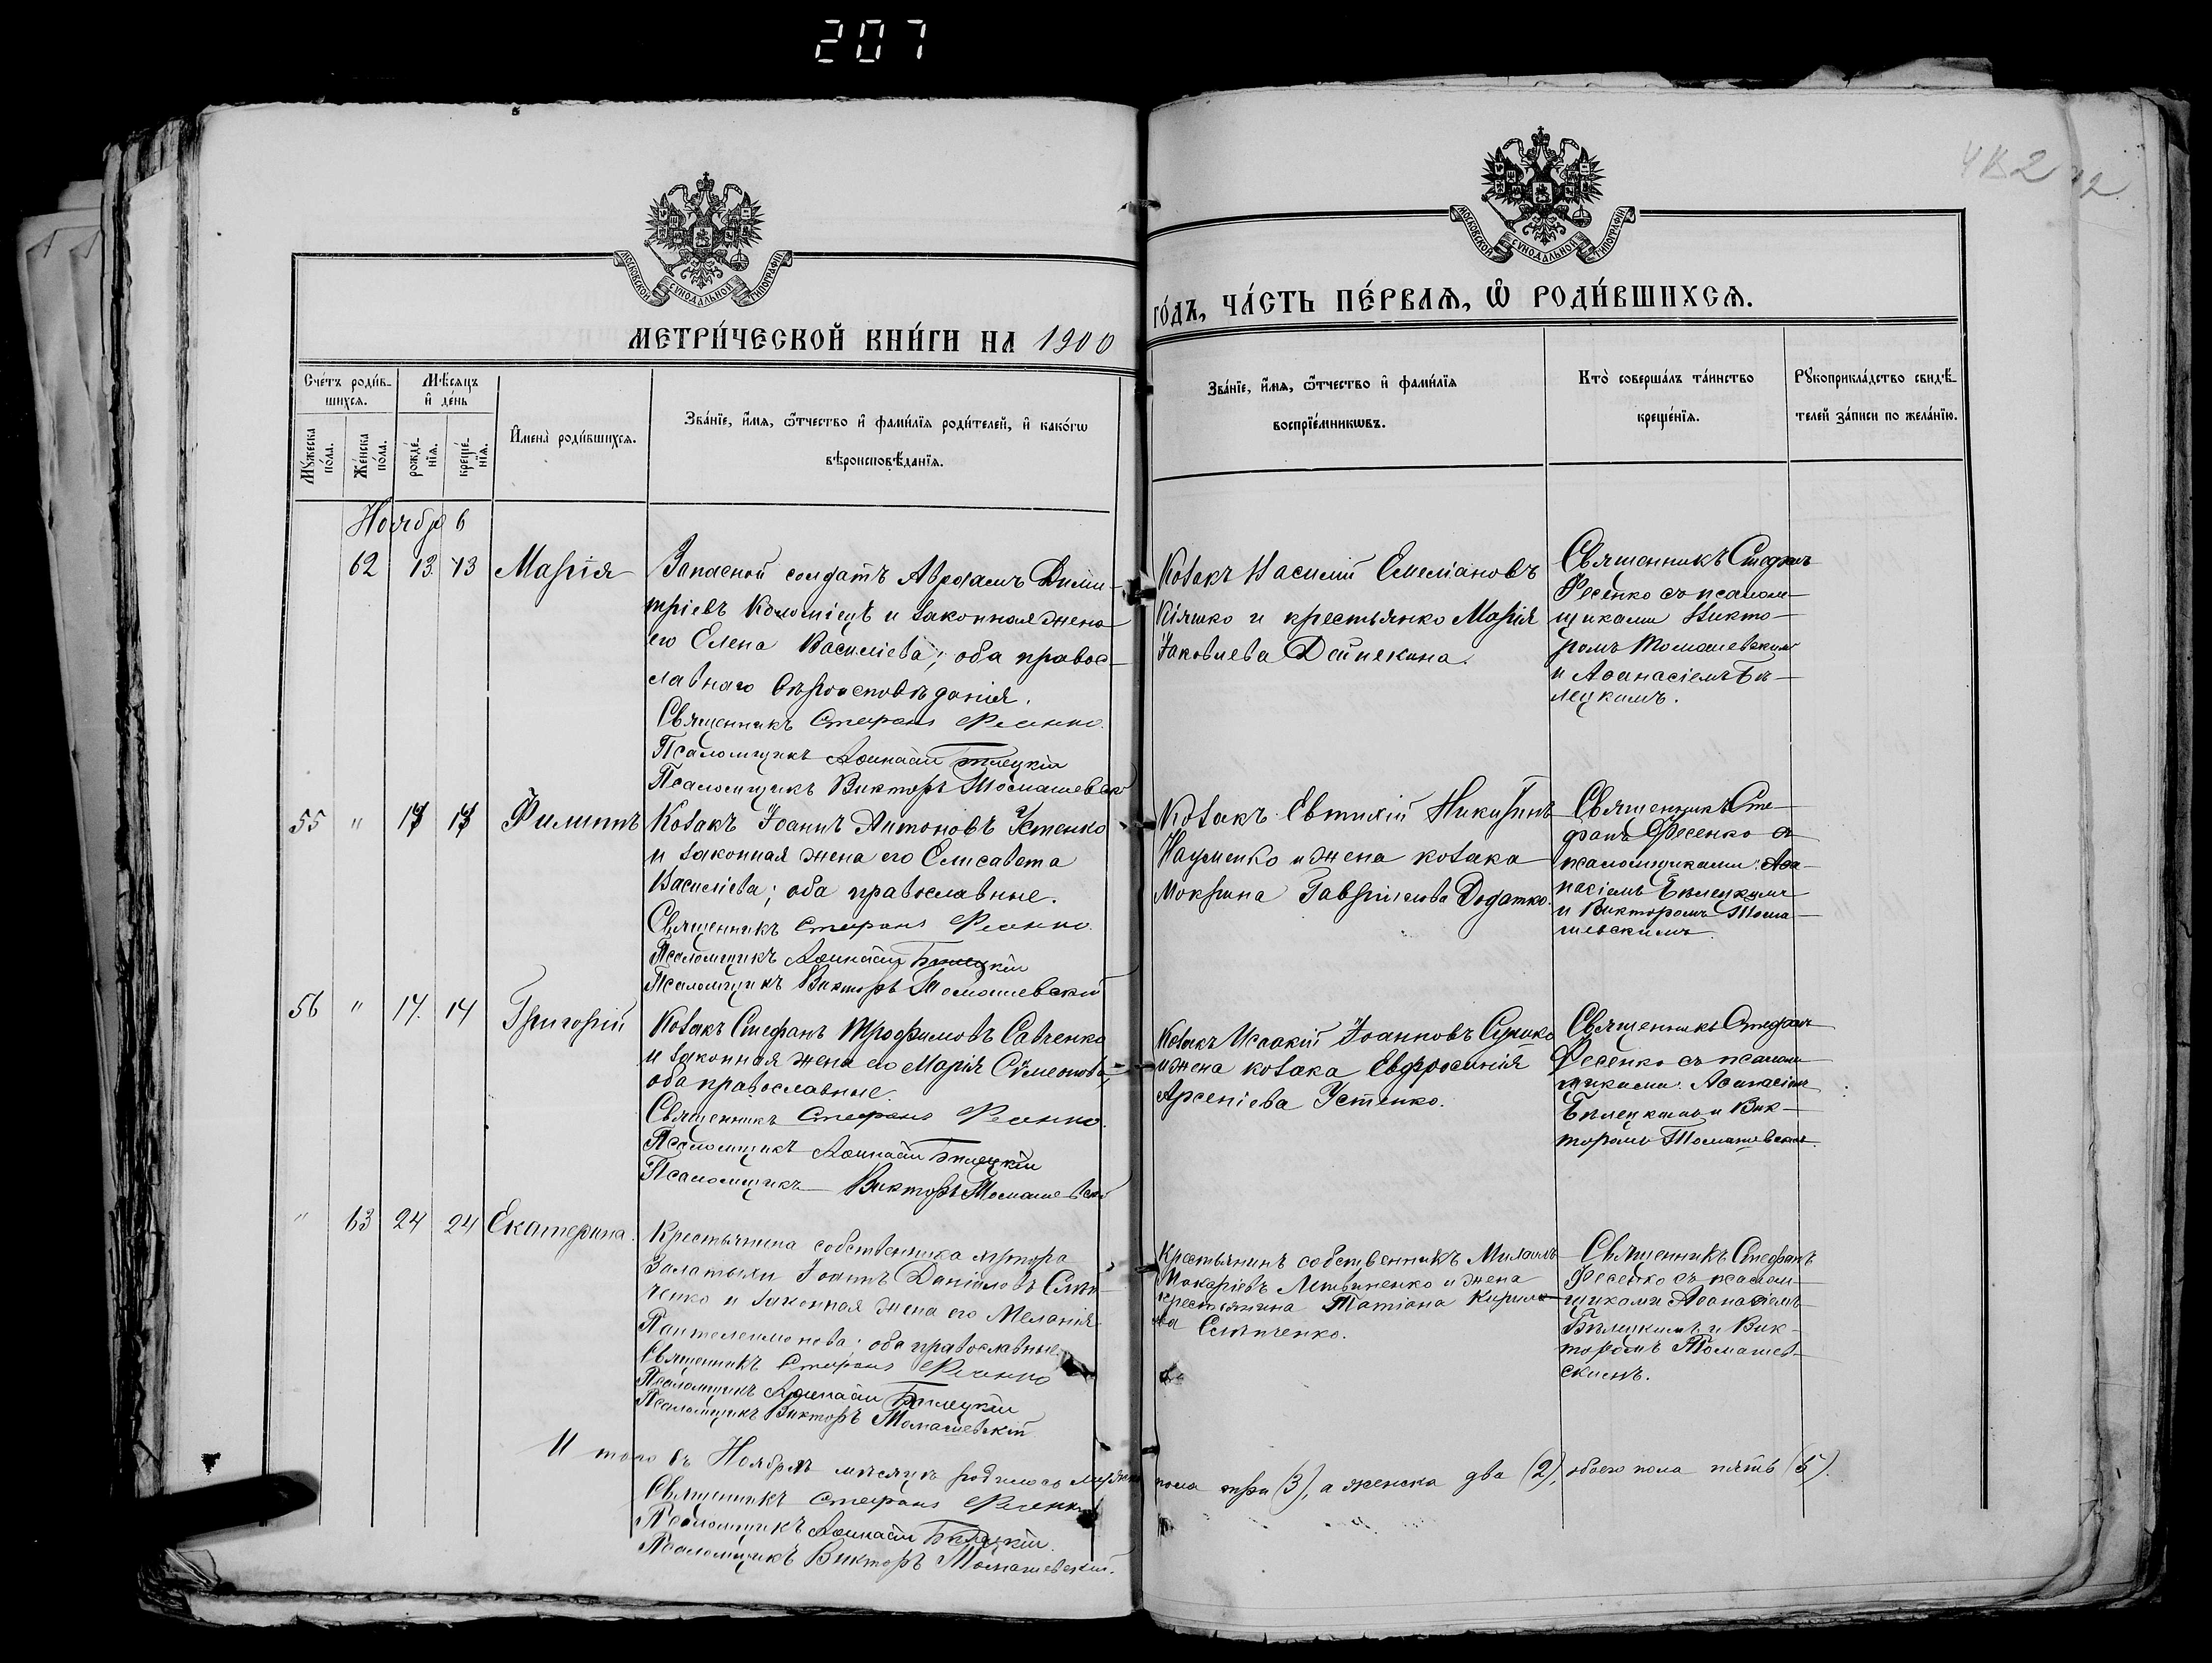 207
482 12
МОСКОВСКОЙ СѴНОДАЛЬНОЙ ТИПОГРАФІИ
МОСКОВСКОЙ СѴНОДАЛЬНОЙ ТИПОГРАФІИ
МЕТРИ́ЧЕСКОЙ КНИ́ГИ НА 1900
ГО́ДЪ, ЧА́СТЬ ПЕ́РВАѦ, Ѡ҆ РОДИ́ВШИХСѦ.
Сче́тъ роди́в-
шихсѧ.
Мꙋжеска по́ла.
Же́нска по́ла.
Мѣ́сѧцъ
и҆ де́нь
рожде́-
нїѧ.
креще́-
нїѧ.
И҆мена̀ роди́вшихсѧ.
Зва́нїе, и҆́мѧ, ѻ҆́тчество и҆ фами́лїѧ роди́телей, и҆ како́гѡ
вѣроисповѣ́данїѧ.
Зва́нїе, и҆́мѧ, ѻ҆́тчество и҆ фами́лїѧ
воспрїе́мникѡвъ.
Кто̀ соверша́лъ та́инство
креще́нїѧ.
Рꙋкоприкла́дство свидѣ́-
телей за́писи по жела́нїю.
Ноябрь
62 13. 13 Марія
Запасной солдатъ Авраамъ Дими-
тріевъ Коломіецъ и законная жена
его Елена Василіева; оба правос-
лавнаго вѣроисповѣданія.
Священникъ Стефанъ Фесенко.
Псаломщикъ Аѳанасій Бѣлецкій
Псаломщикъ Викторъ Томашевскі
Козакъ Василій Емеліановъ
Кіяшко и крестьянка Марія
Іаковлева Дейнекина.
Священникъ Стефанъ
Фесенко съ псалом-
щиками Викто-
ромъ Томашевскимъ
и Аѳанасіемъ Бѣ-
лецкимъ.
55 " 13 13 Филиппъ
Козакъ Іоаннъ Антоновъ Устенко
и законная жена его Елисавета
Василіева; оба православные.
Священникъ Стефанъ Фесенко.
Псаломщикъ Аѳанасій Бѣлецкій
Псаломщикъ Викторъ Томашевскій
Козакъ Евтихій Никитинъ
Науменко и жена козака
Мокрина Гавріилова Додатко.
Священникъ Сте-
фанъ Фесенко съ
псаломщиками Аѳа-
насіемъ Бѣлецкимъ
и Викторомъ Тома-
шевскимъ.
56 " 14. 14 Григорій
Козакъ Стефанъ Трофимовъ Савченко
и законная жена его Марія Сѵмеонова,
оба православные.
Священникъ Стефанъ Фесенко.
Псаломщикъ Аѳанасій Бѣлецкій
Псаломщикъ Викторъ Томашевскій
Козакъ Исаакій Іоанновъ
и жена козака Евфросинія
Арсеніева Устенко.
Священникъ Стефанъ
Фесенко съ псалом-
щиками Аѳанасіем
Бѣлецкимъ и Вик-
торомъ Томашевским.
" 63 24 24 Екатерина.
Крестьянина собственника хутора
Іоаннъ Даніиловъ Слѣп-
ченко и законная жена его Меланія
Пантелеимонова; оба православные.
Священникъ Стефанъ Фесенко
Псаломщикъ Аѳанасій Бѣлецкій
Псаломщикъ Викторъ Томашевскій
Крестьянинъ собственникъ Михаилъ
Макаріевъ Литвиненко и жена
крестьянина Татіана Кирило-
ва Слѣпченко.
Священникъ Стефанъ
Фесенко съ псалом-
щиками Аѳанасіемъ
Бѣлецкимъ и Вик-
торомъ Томашев-
скимъ.
Итого въ Ноябрѣ мѣсяцѣ родилось мужска пола три (3), а женска два (2), обоего пола пять (5).
Священникъ Стефанъ Фесенко
Псаломщикъ Аѳанасій Бѣлецкій.
Псаломщикъ Викторъ Томашевскій.